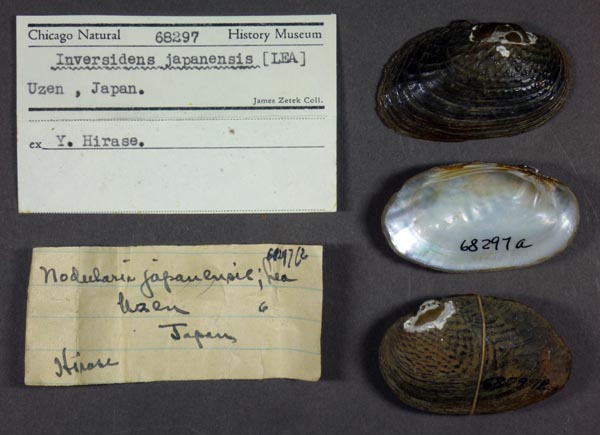 Chicago Natural 68297 History Museum
Inversidens japanensis [LEA]
Uzen , Japan.
James Zetek Coll.
ex Y. Hirase.
68297/2
Nodularia japanensis; Lea
Uzen 6
Japan
Hirase
68297a
68297b